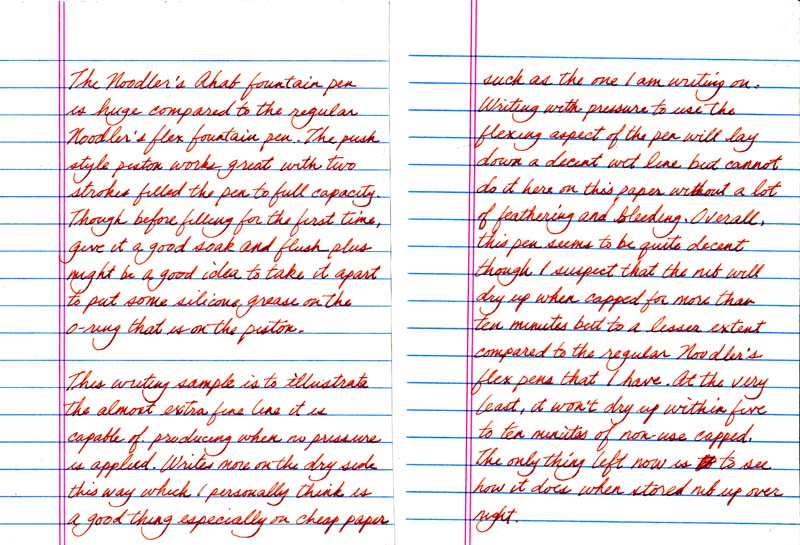 The Noodler's Ahab fountain pen
is huge compared to the regular
Noodler's flex fountain pen. The push
style piston works great with two
strokes filled the pen to full capacity.
Though before filling for the first time,
give it a good soak and flush plus
might be a good idea to take it apart
to put some silicone grease on the
o-ring that is on the piston.
This writing sample is to illustrate
the almost extra fine line it is
capable of producing when no pressure
is applied. Writes more on the dry side
this way which I personally think is
a good thing especially on cheap paper
such as the one I am writing on.
Writing with pressure to use the
flexing aspect of the pen will lay
down a decent wet line but cannot
do it here on this paper without a lot
of feathering and bleeding. Overall,
this pen seems to be quite decent
though I suspect that the nib will
dry up when capped for more than
ten minutes but to a lesser extent
compared to the regular Noodler's
flex pens that I have. At the very
least, it won't dry up within five
to ten minutes of non-use capped.
The only thing left now is to see
how it does when stored nib up over
night.